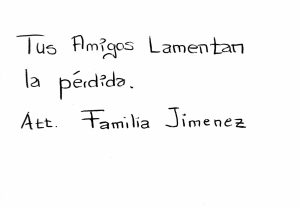 Tus Amigos Lamentan
la pérdida.
Att. Familia Jimenez